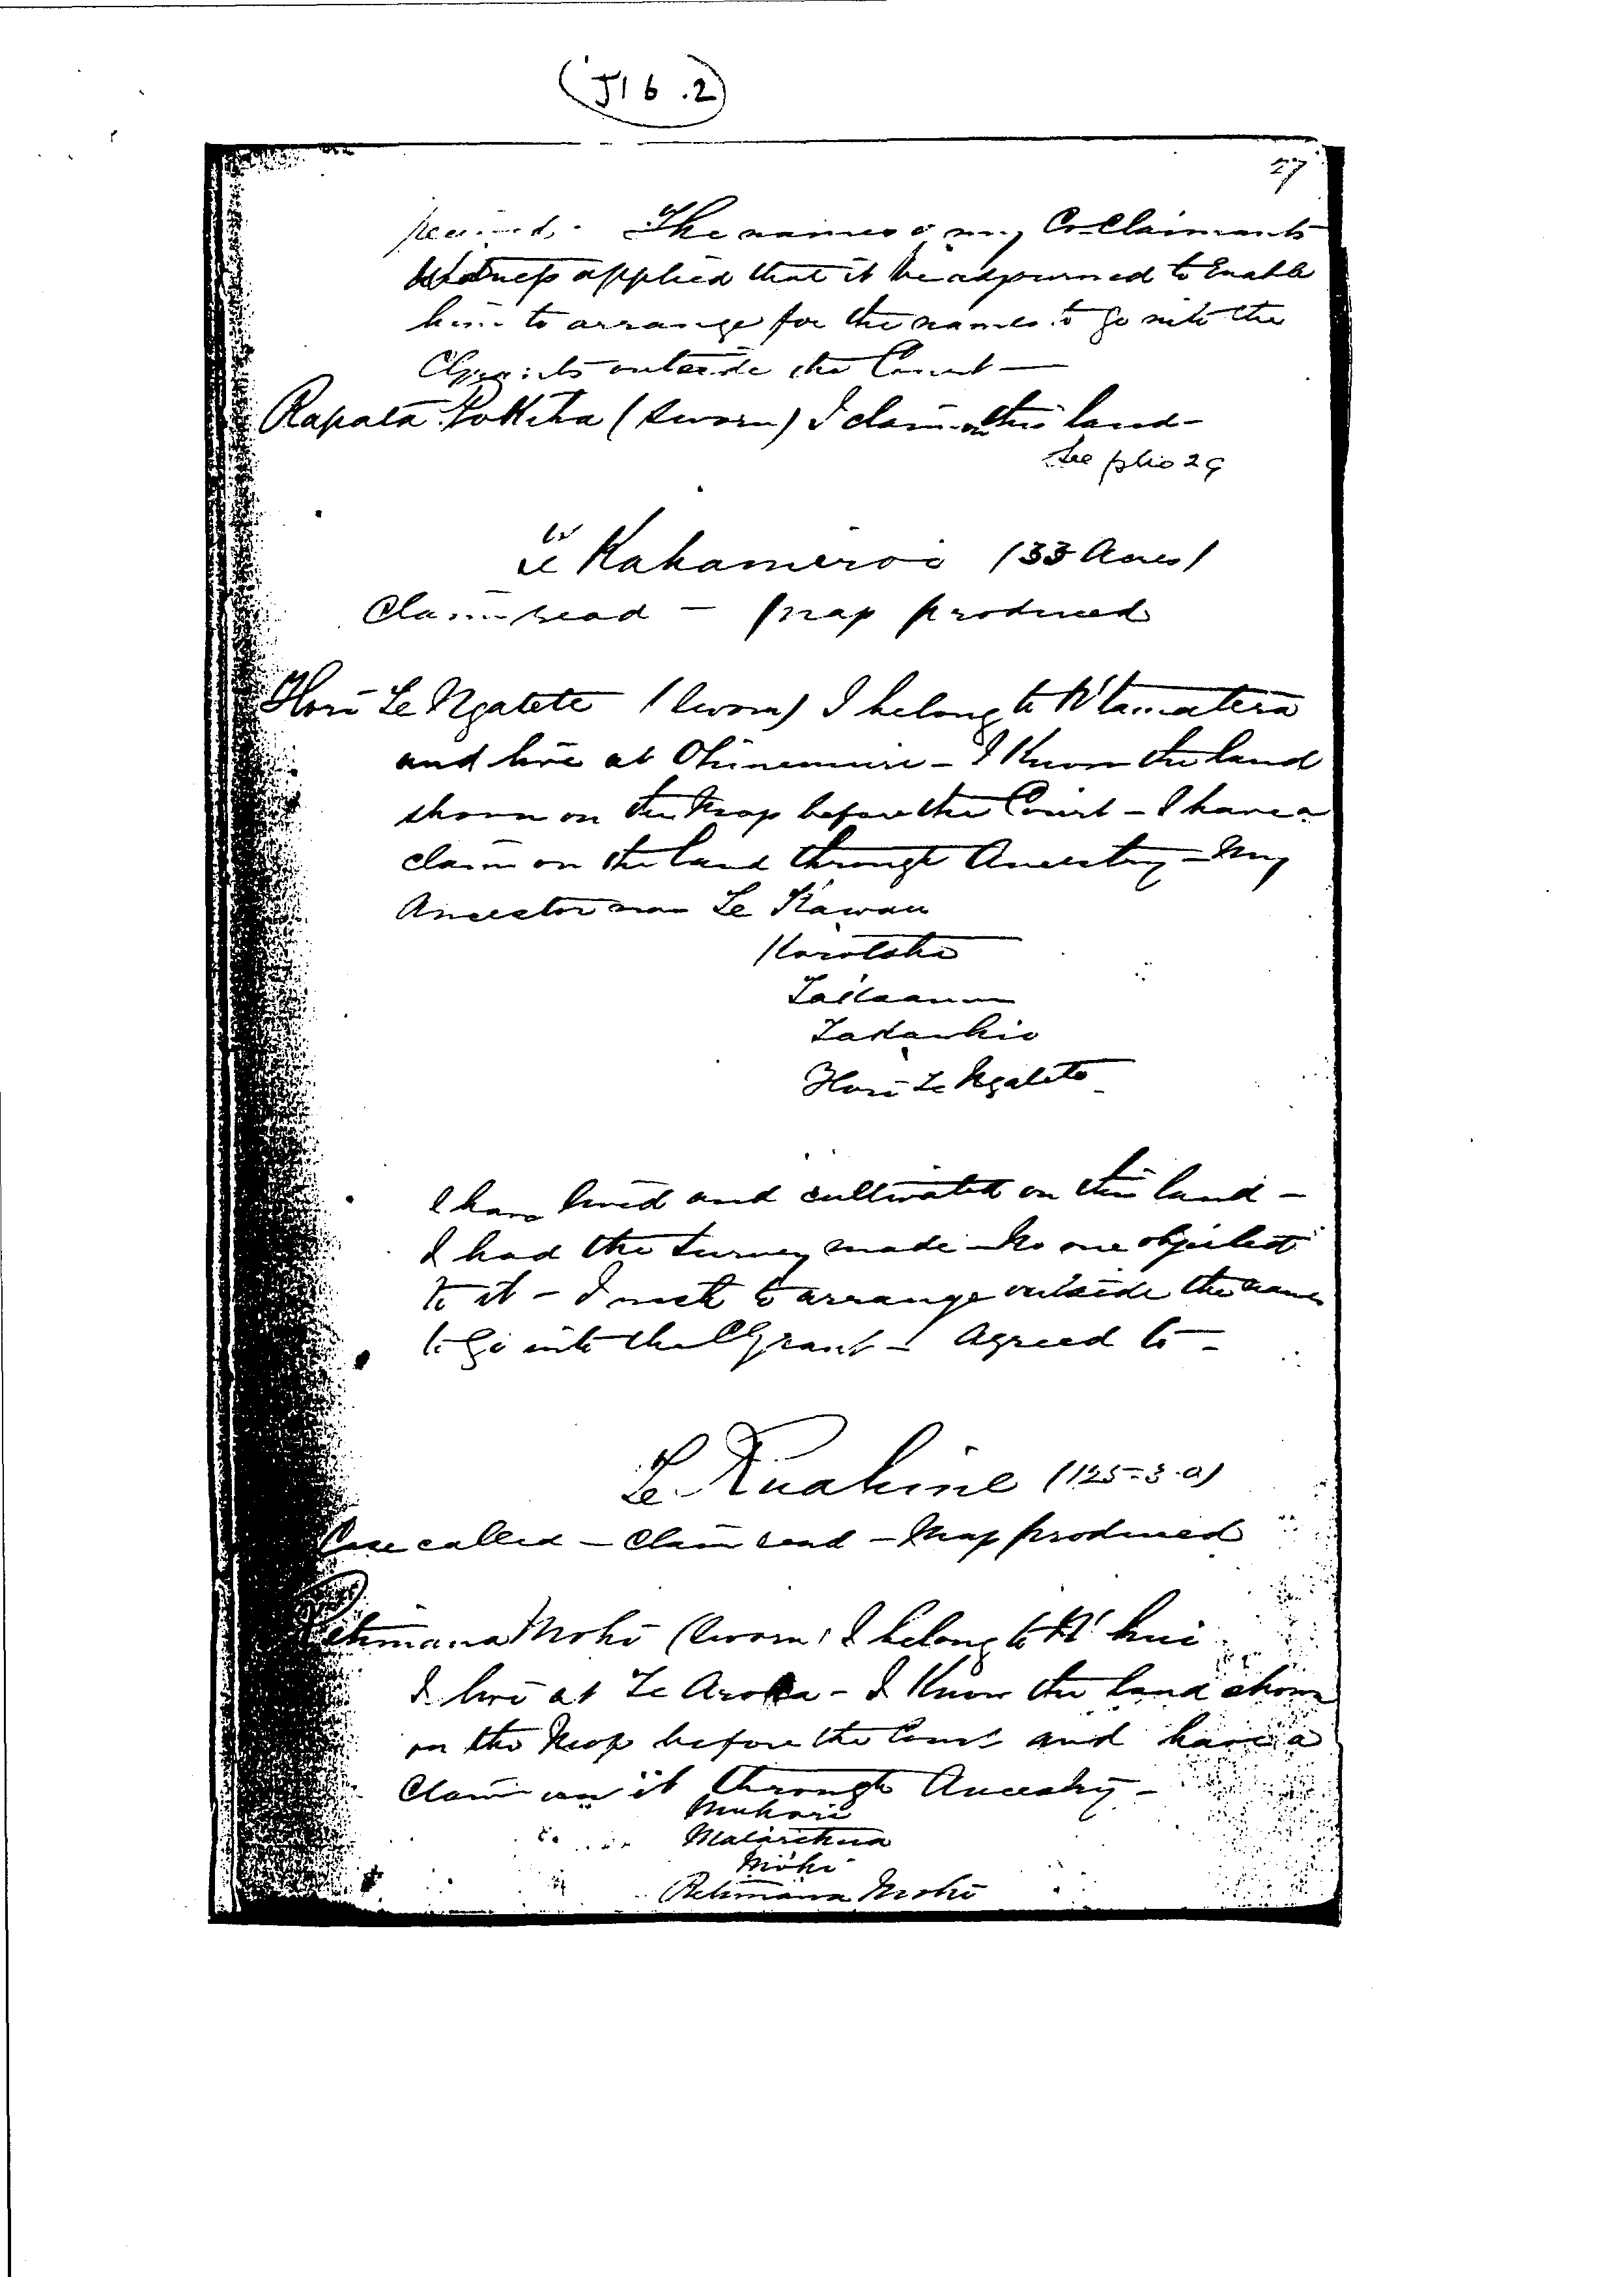 (J16.2)
27
The names of my Co Claimants
Witness applied that it be adjourned to Enable
him to arrange for the names to go into the
CGrants outside the Court —
Rapata Pokiha (Sworn) I claim on this land -
See folio 29
Te Kahameroi (33 Acres)
Claim read - Map produced
Hori Te Ngatete (Sworn) I belong to N'tamatera
and live at Ohinemuri - I Know the land
shown on the Map before the Court - I have a
claim on the land through Ancestry - My
Ancestor was Te Kawau
Horotaha
Tadanhio
Hori Te Ngatete -
I have lived and cultivated on this land -
I had the Survey made - No one objected
to it - I wish to arrange outside the names
to go into the CGrant - Agreed to -
Te Ruahine (125-3-0)
Case called - Claim read - Map produced
Rehmana Mohi (Sworn) I belong to N' hui
I live at Te Aroha - I Know the land shown
on the Map before the Court and have a
Claim on it through Ancestry -
Muhari
Matarehua
Mohi
Rehmana Mohi